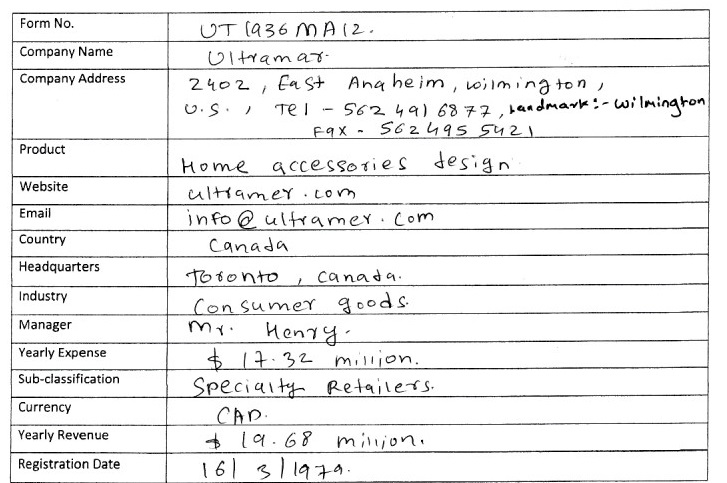 Form No. UT1936MA12.
Company Name Ultramar
Company Address 2402, East Anaheim, wilmington,
U.S., Tel - 562 491 6877, Landmark:- Wilmington
Fax - 562 495 5421
Product Home accessories design
Website ultramer.com
Email info@ultramer.com
Country Canada
Headquarters Toronto, Canada.
Industry Consumer goods.
Manager Mr. Henry.
Yearly Expense $ 17.32 million.
Sub-classification Specialty Retailers.
Currency CAD.
Yearly Revenue $ 19.68 million.
Registration Date 16/3/1979.